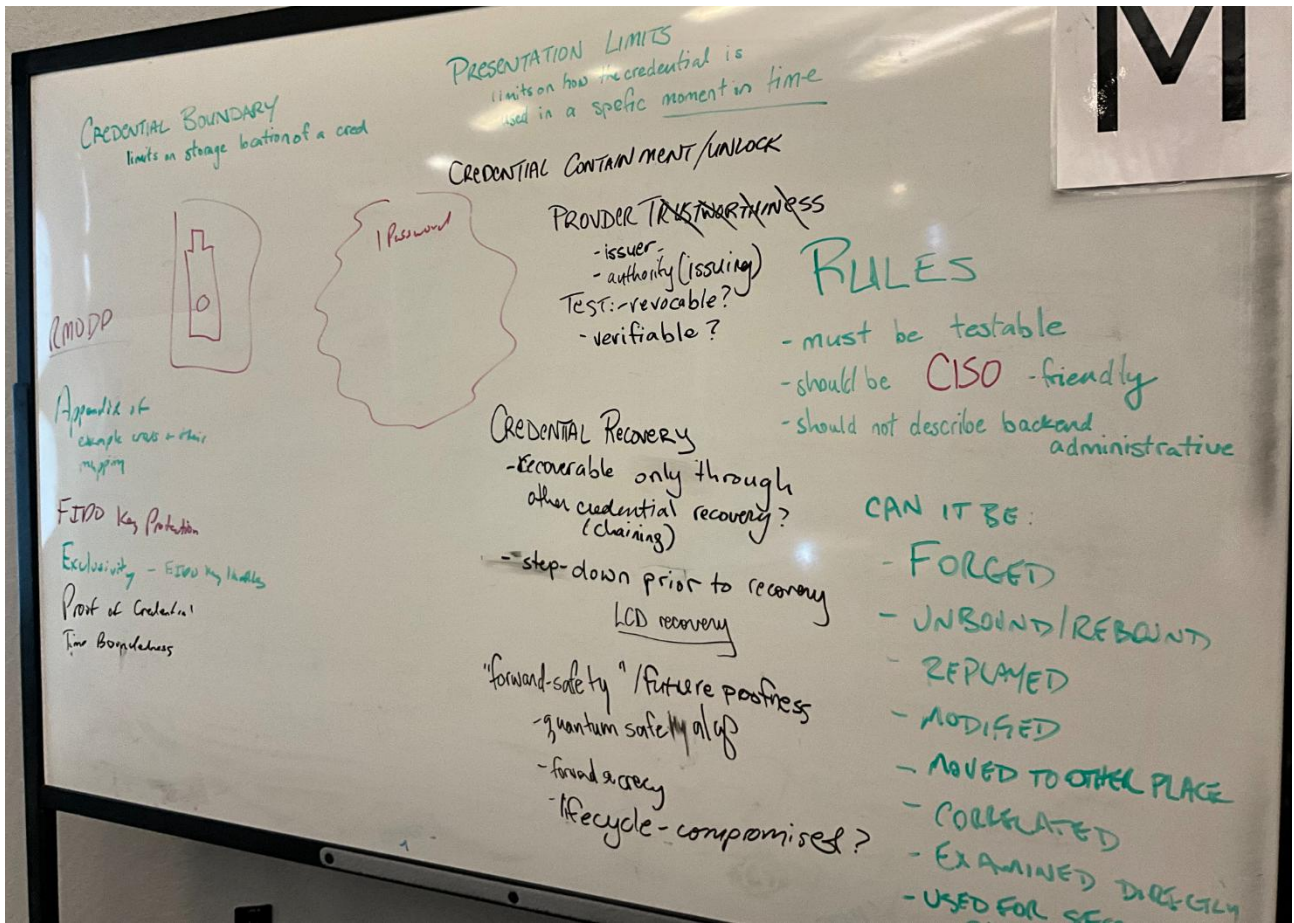 M
PRESENTATION LIMITS
limits on how the credential is
used in a spefic moment in time
CREDENTIAL BOUNDARY
limits on storage location of a cred
CREDENTIAL CONTAINMENT/UNLOCK
PROVDER TRUSTWORTHINESS
- issuer -
- authority (issuing)
TEST: - revocable?
- verifiable?
1Password
RMODP
Appendix of
example creds + their
mapping
FIDO Key Protection
Exclusivity - FIDO Key
Proof of Credential
Time Boundedness
CREDENTIAL RECOVERY
- recoverable only through
other credential recovery?
(chaining)
- step-down prior to recovery
LCD recovery
"forward-safety"/future proofness
- quantum safe alg
- forward secrecy
- lifecycle-compromised?
RULES
- must be testable
- should be CISO - friendly
- should not describe backend
administrative
CAN IT BE:
- FORGED
- UNBOUND/REBOUND
- REPLAYED
- MODIFIED
- MOVED TO OTHER PLACE
- CORRELATED
- EXAMINED DIRECTLY
- USED FOR